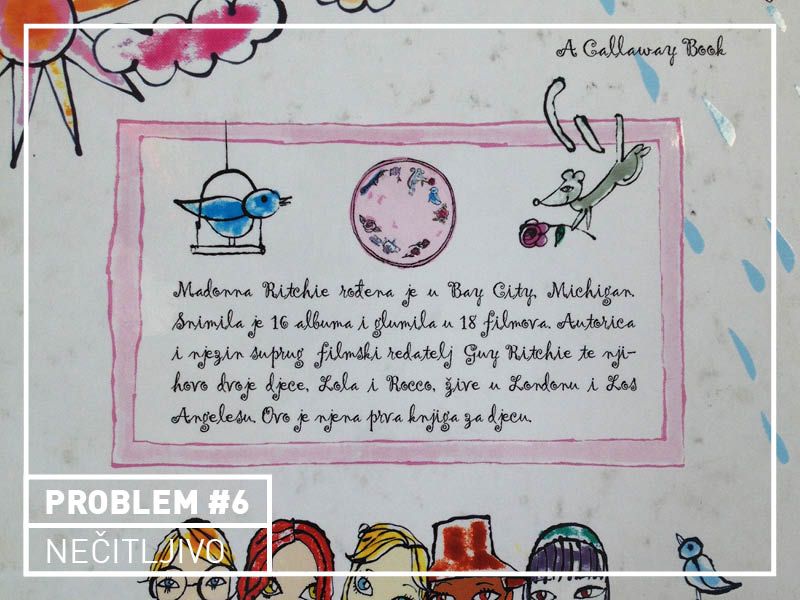 A Callaway Book
Madonna Ritchie rođena je u Bay City, Michigan.
Snimila je 16 albuma i glumila u 18 filmova. Autorica
i njezin suprug filmski redatelj Guy Ritchie te nji-
hovo dvoje djece, Lola i Rocco, žive u Londonu i Los
Angelesu. Ovo je njena prva knjiga za djecu.
PROBLEM #6
NEČITLJIVO